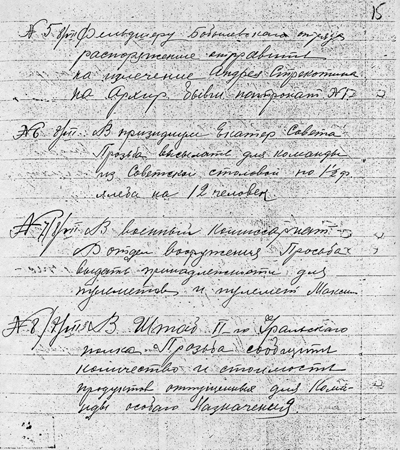 15
№ 5 8/VII Фельдшеру отряда
распоряжение отправить
на излечение Андрея Стрекотина
на
№ 6 8/VII. В президиум Екатер Совета
Прозьба высылать для команды
из Советской столовой по 1 ф.
хлеба на 12 человек
№ 7 8/VII. В военный Комиссариат
В отдел вооружения Просьба
выдать принадлежности для
пулеметов и пулемет Максим
№ 8 В Штаб II го Уральского
полка Прозьба сообщить
количество и стоимость
продуктов отпущенных для Кома-
нды особаго Назначения